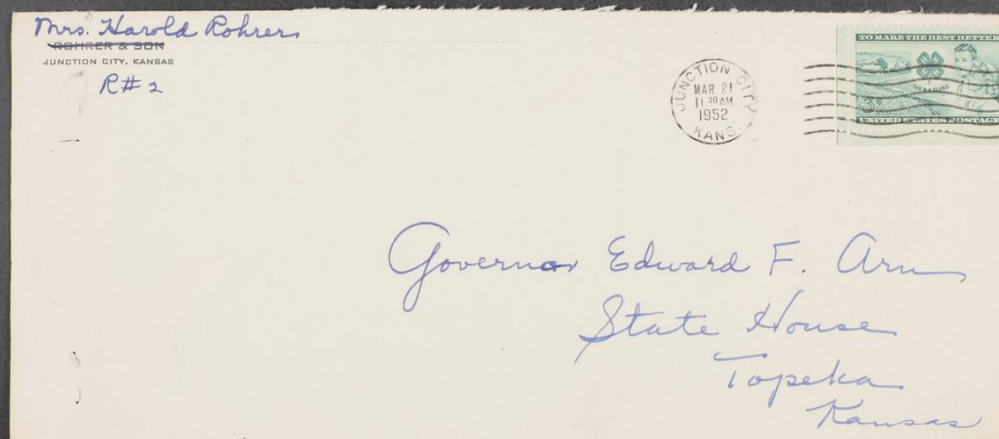 Mrs. Harold Rohrer
ROHRER & SON
JUNCTION CITY, KANSAS
R# 2
JUNCTION CITY
MAR 21
11 30 AM
1952
KANS.
TO MAKE THE BEST BETTER
THE 4-H CLUBS
3¢
UNITED STATES POSTAGE
Governor Edward F. Arn
State House
Topeka
Kansas